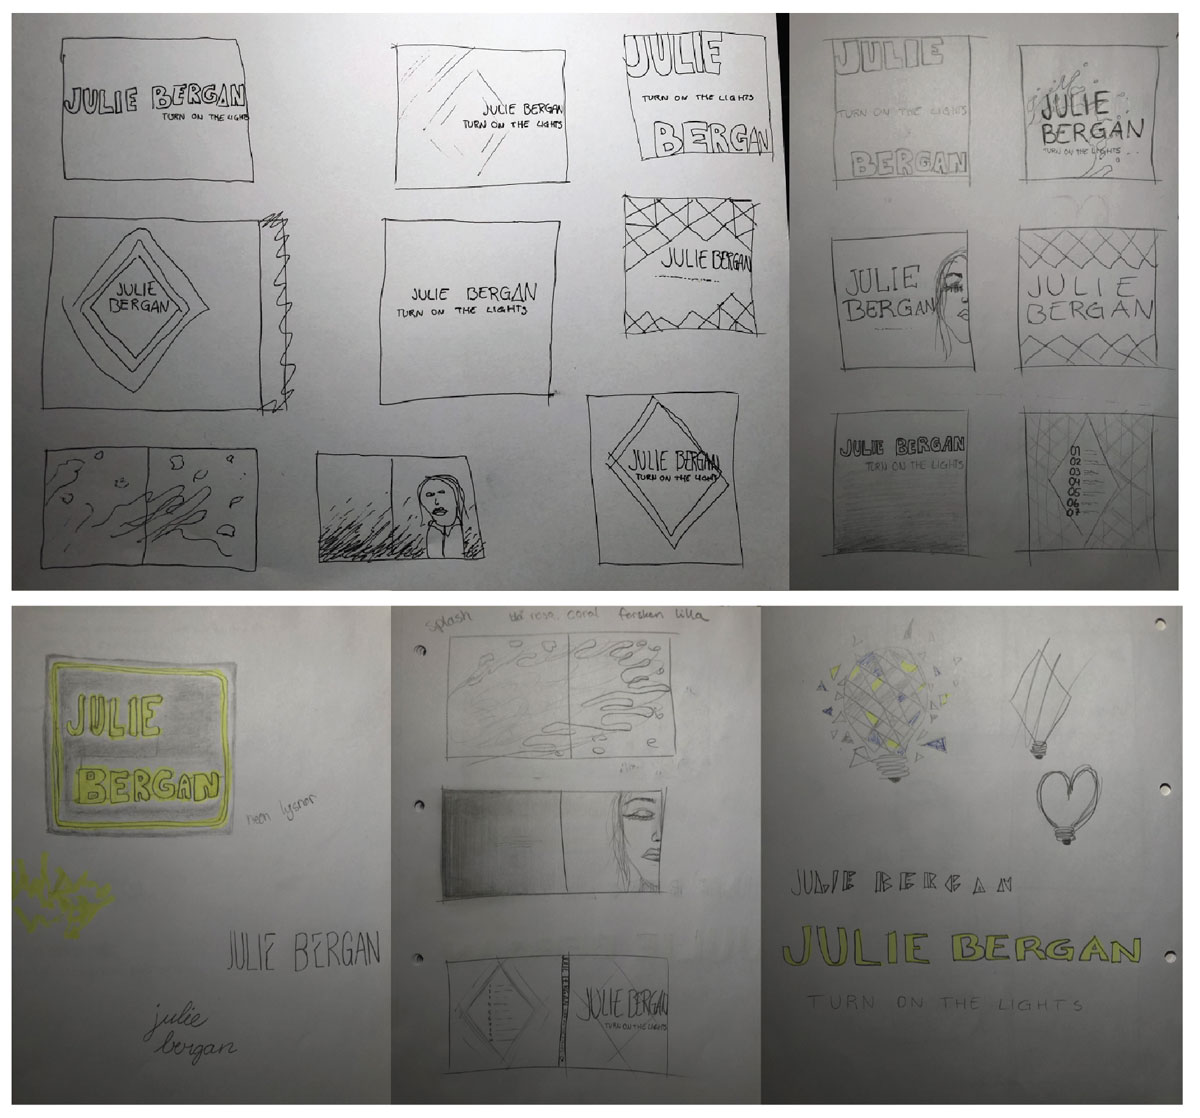 JULIE BERGAN
TURN ON THE LIGHTS
JULIE BERGAN
TURN ON THE LIGHTS
JULIE
TURN ON THE LIGHTS
BERGAN
JULIE
BERGAN
JULIE BERGAN
TURN ON THE LIGHTS
JULIE BERGAN
JULIE BERGAN
TURN ON THE LIGHTS
JULIE
TURN ON THE LIGHTS
BERGAN
JULIE
BERGAN
TURN ON THE LIGHTS
JULIE
BERGAN
JULIE
BERGAN
JULIE BERGAN
TURN ON THE LIGHTS
01
02
03
04
05
06
07
JULIE
BERGAN
neon
JULIE BERGAN
julie
bergan
splash rosa coral fersken lilla
JULIE BERGAN
TURN ON THE LIGHTS
JULIE BERGAN
JULIE BERGAN
TURN ON THE LIGHTS